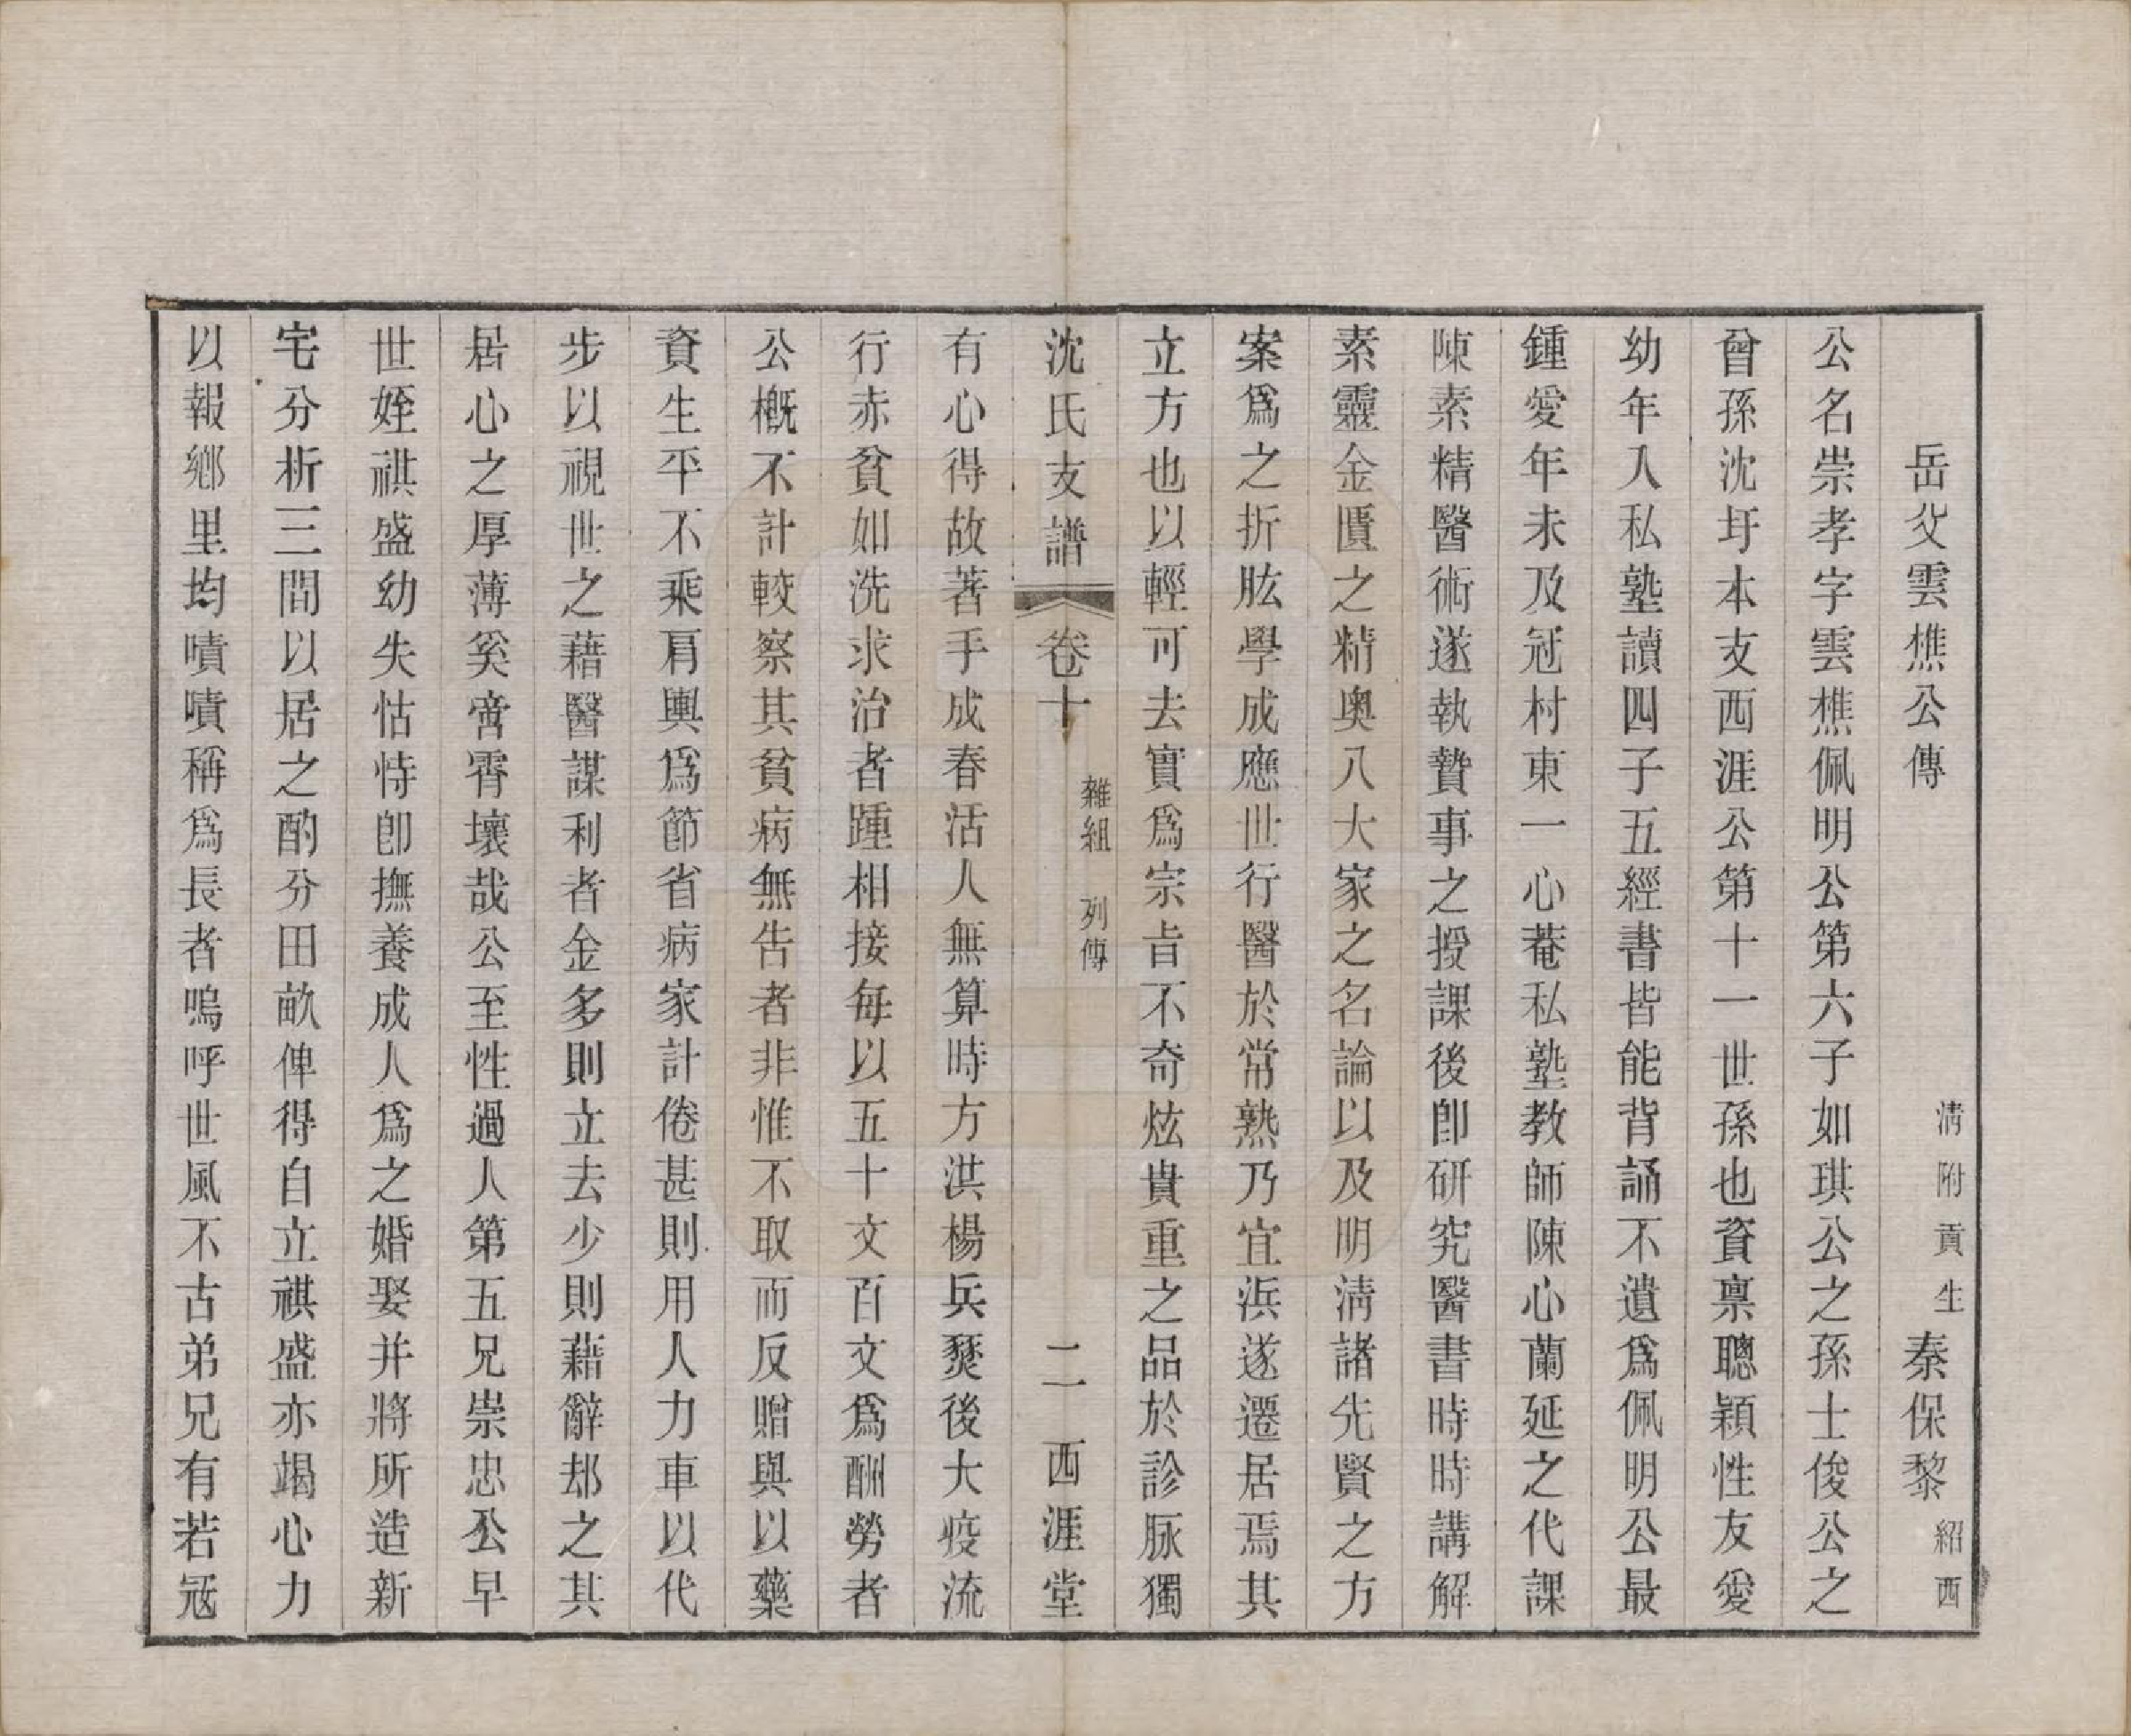 岳父雲樵公傳　　清附貢生秦保黎紹西
公名崇孝字雲樵佩明公第六子如琪公之孫士俊公之
曾孫沈圩本支西涯公第十一世孫也資禀聰穎性友愛
幼年入私塾讀四子五經書皆能背誦不遺爲佩明公最
鍾愛年未及冠村東一心菴私塾教師陳心蘭延之代課
陳素精醫術遂執贄事之授課後卽研究醫書時時講解
素靈金匱之精奥八大家之名論以及明清諸先賢之方
案爲之折肱學成應世行醫於常熟乃宜浜遂遷居焉其
立方也以輕可去實爲宗旨不奇炫貴重之品於診脉獨
沈氏支譜　卷十　雜組　列傳　二　西涯堂
有心得故著手成春活人無算時方洪楊兵燹後大疫流
行赤貧如洗求治者踵相接每以五十文百文爲酬勞者
公概不計較察其貧病無告者非惟不取而反贈與以藥
資生平不乘肩輿爲節省病家計倦甚則用人力車以代
步以視世之藉醫謀利者金多則立去少則藉辭却之其
居心之厚薄奚啻霄壤哉公至性過人第五兄崇忠公早
世姪祺盛幼失怙恃卽撫養成人爲之婚娶并將所造新
宅分析三間以居之酌分田畝俾得自立祺盛亦竭心力
以報鄉里均嘖嘖稱爲長者嗚呼世風不古弟兄有若冦